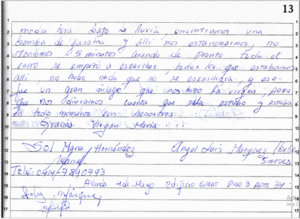 13
media hora bajo la lluvia encontramos una
bomba de gasolina y allí nos estacionamos, no
5 minutos cuando de pronto todo el
carro se empezó a escarchar, todos los que estabamos
allí no hubo nada que no se escarchara, y ese
fue un gran milagro que nos hizo la virgen para
que nos dieramos cuenta que ella estuvo y estaba
en todo momento con nosotros.
Gracias Virgen María
Sol María Hernández Angel Luis Márquez
Telf: 0414-7890793
Avenida Edificio Piso 3 Apto 34
Márquez